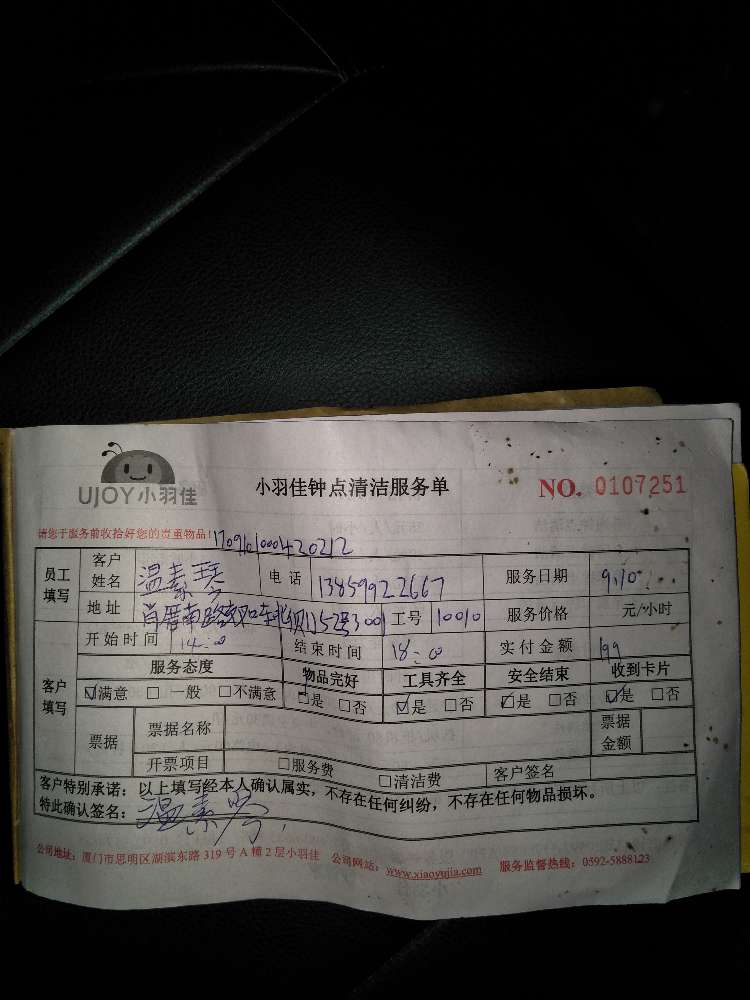 UJOY小羽佳
小羽佳钟点清洁服务单
NO. 0107251
请您于服务前收拾好您的贵重物品!
员工填写 客户姓名 温素琴 电话 13859922667 服务日期 9.10
地址 工号 10010 服务价格 元/小时
客户填写 开始时间 14:00 结束时间 18:00 实付金额 199
服务态度 物品完好 工具齐全 安全结束 收到卡片
☑满意 □一般 □不满意 ☑是 □否 ☑是 □否 ☑是 □否 ☑是 □否
票据 票据名称 票据金额
开票项目 □服务费 □清洁费 客户签名
客户特别承诺:以上填写经本人确认属实,不存在任何纠纷,不存在任何物品损坏。
特此确认签名: 温素琴
公司地址:厦门市思明区湖滨东路319号A幢2层小羽佳 公司网站:www.xiaoyujia.com 服务监督热线:0592-5888123